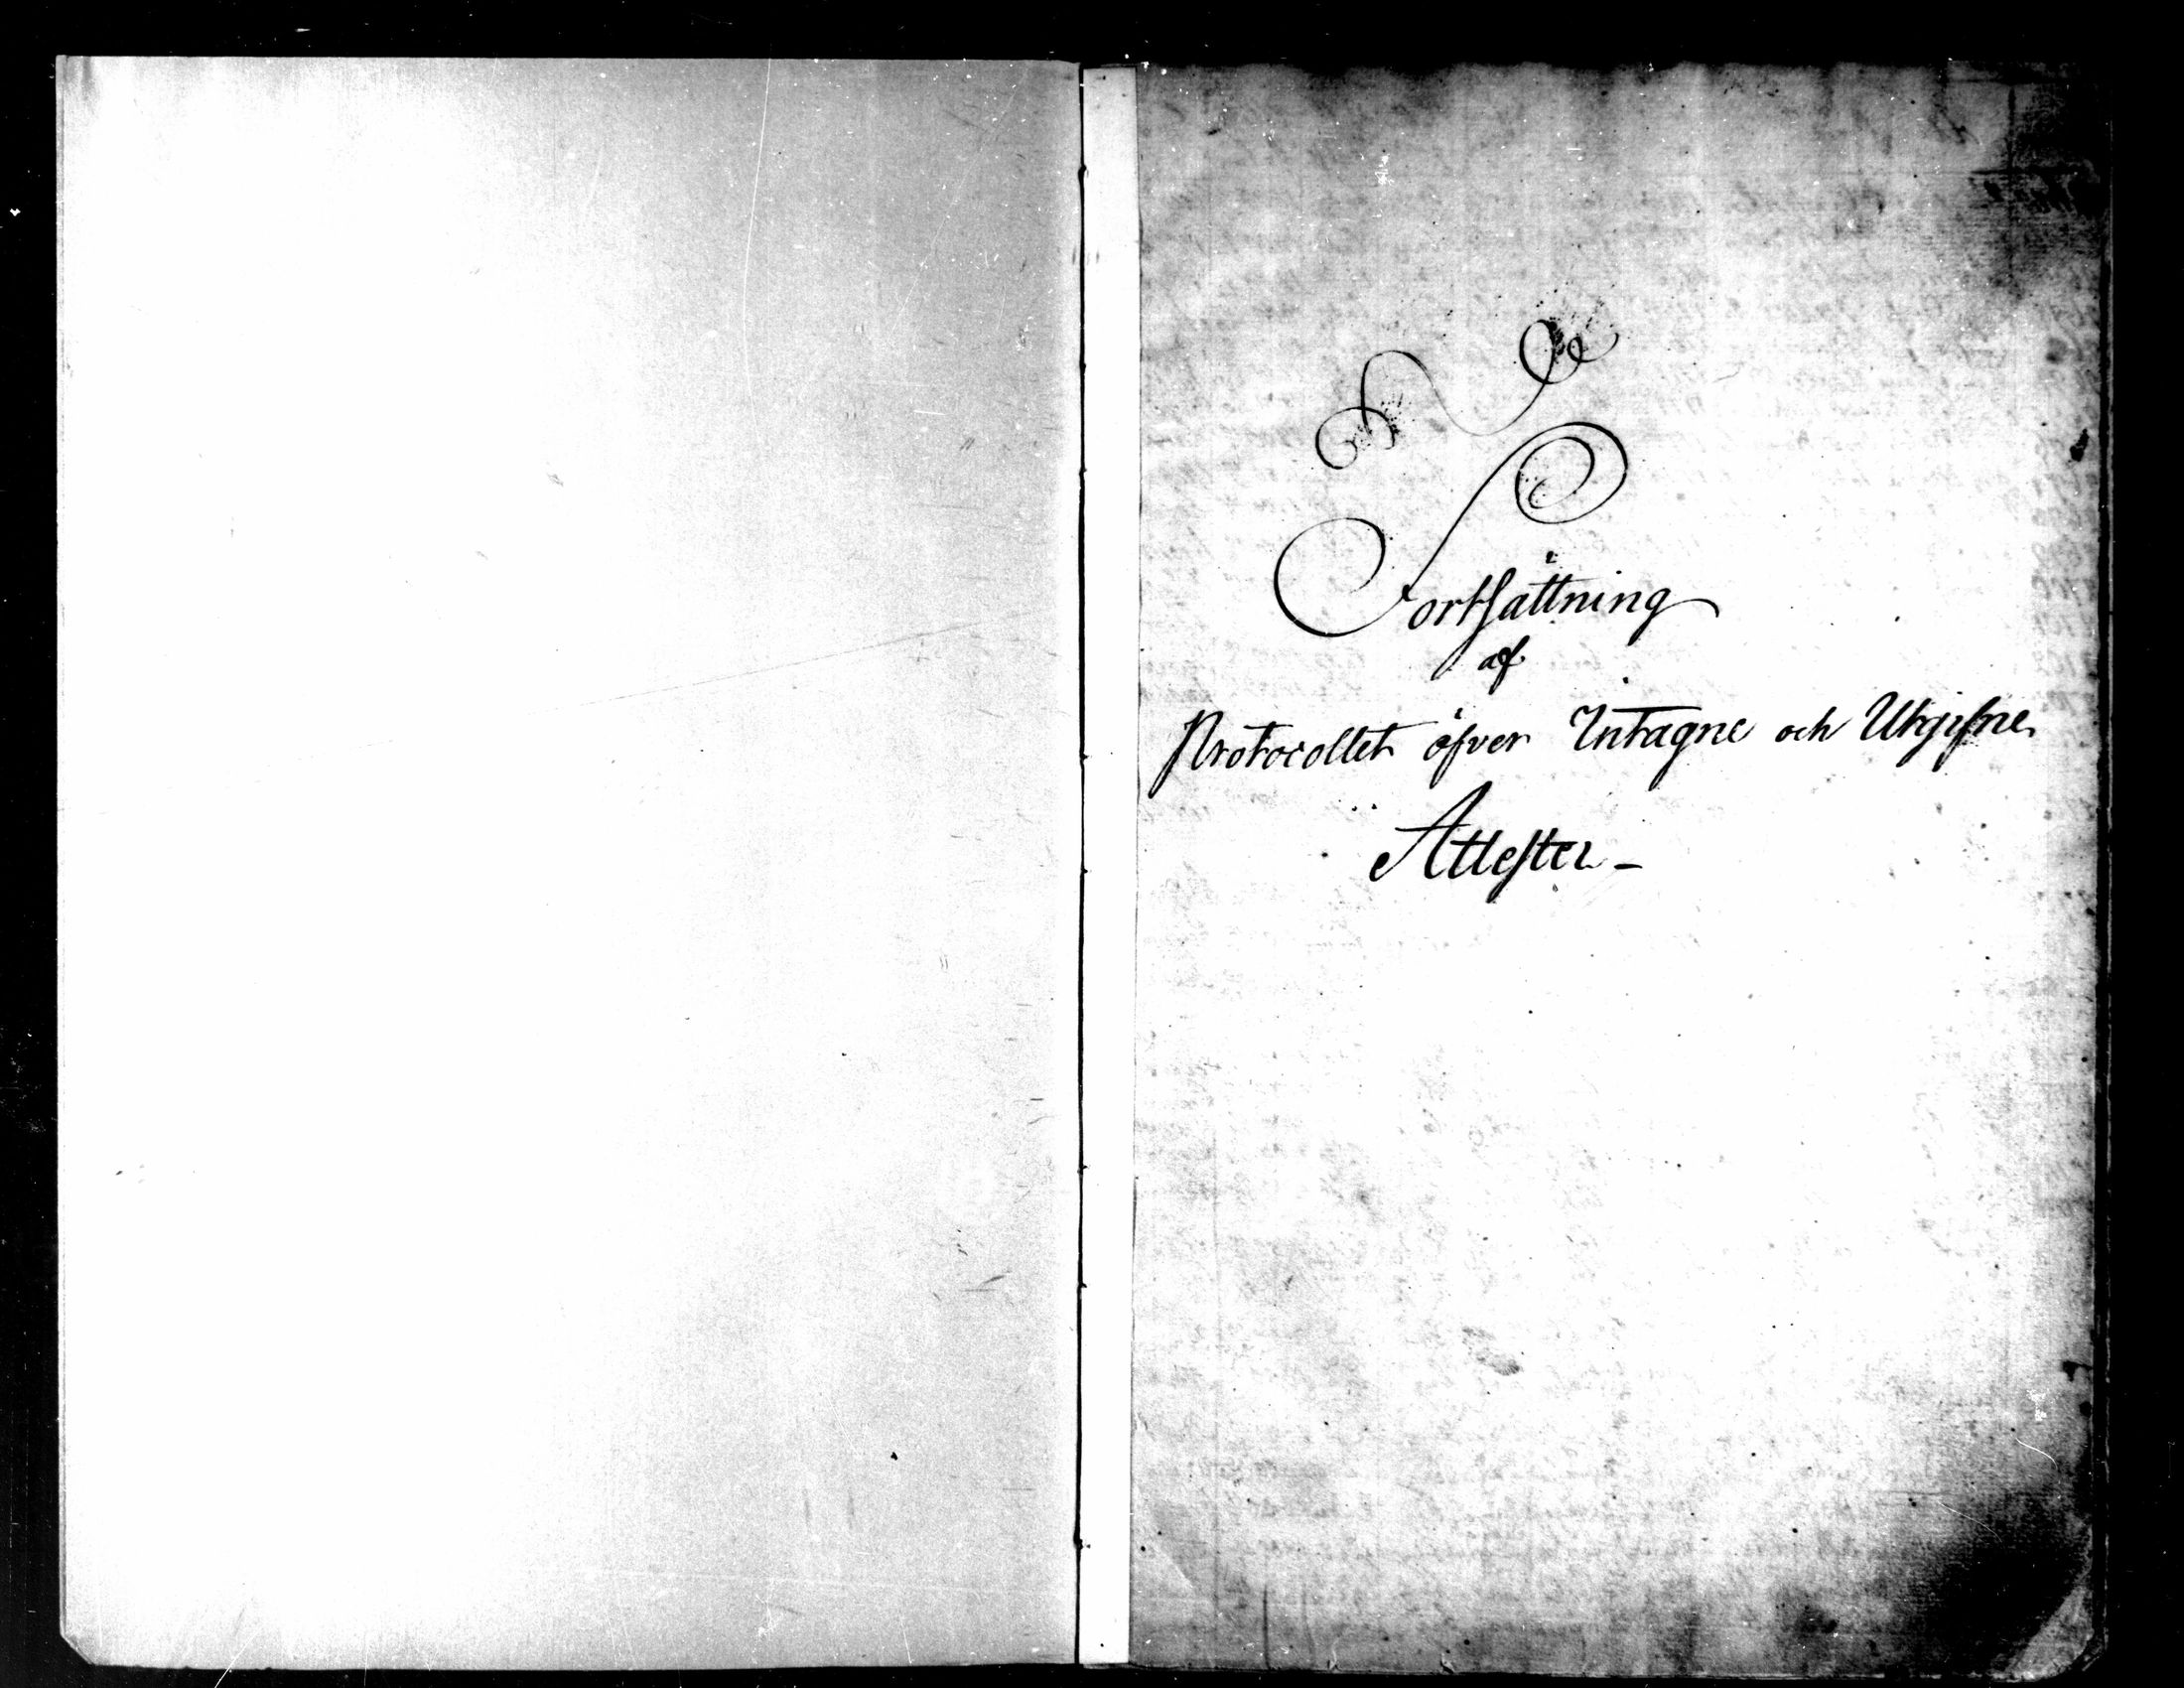 Fortsättning
af
Protocollet öfver Intagne och Utgifne
Attester –